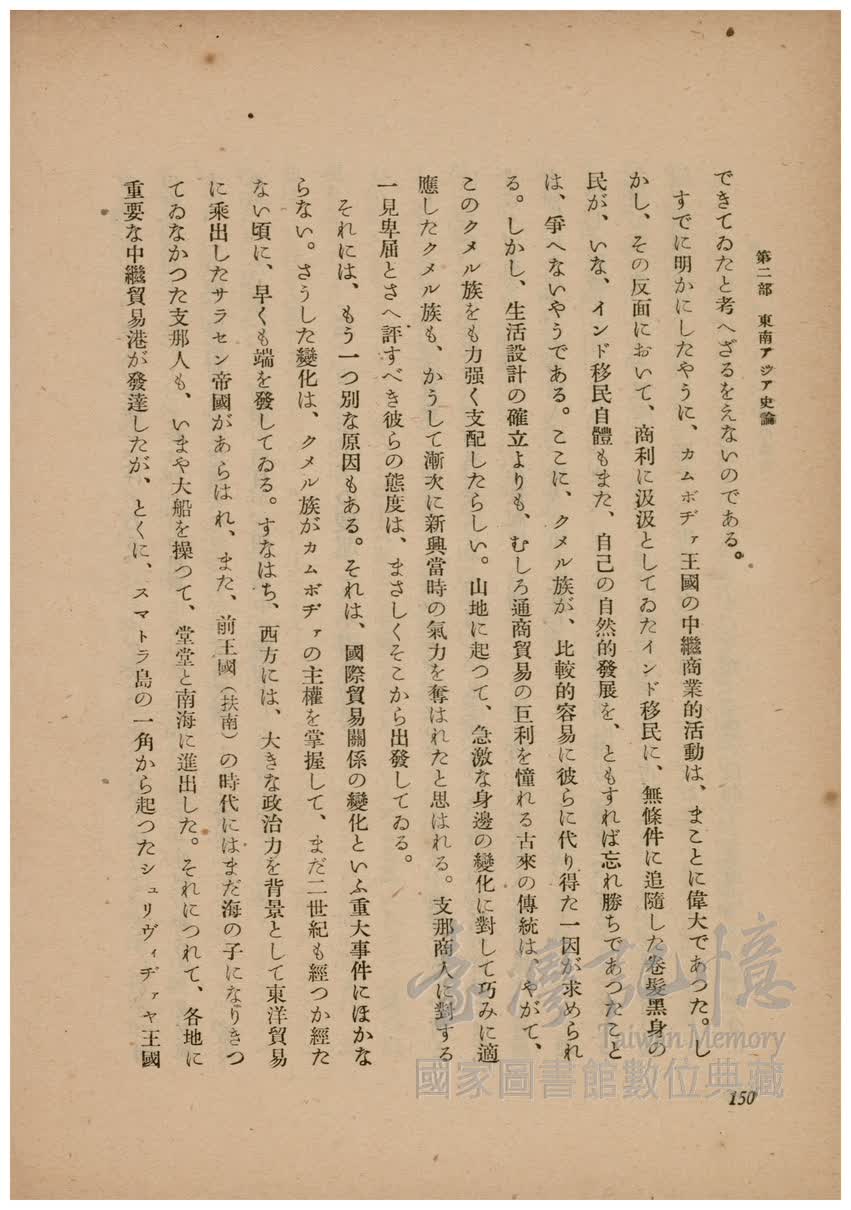 第二部　東南アジア史論
できてゐたと考へざるをえないのである。
すでに明かにしたやうに、カムボヂァ王國の中繼商業的活動は、まことに偉大であつた。し
かし、その反面において、商利に汲汲としてゐたインド移民に、無條件に追隨した卷髮黑身の
民が、いな、インド移民自體もまた、自己の自然的發展を、ともすれば忘れ勝ちであつたこと
は、爭へないやうである。ここに、クメル族が、比較的容易に彼らに代り得た一因が求められ
る。しかし、生活設計の確立よりも、むしろ通商貿易の巨利を憧れる古來の傳統は、やがて、
このクメル族をも力强く支配したらしい。山地に起つて、急激な身邊の變化に對して巧みに適
應したクメル族も、かうして漸次に新興當時の氣力を奪はれたと思はれる。支那商人に對する
一見卑屈とさへ評すべき彼らの態度は、まさしくそこから出發してゐる。
それには、もう一つ別な原因もある。それは、國際貿易關係の變化といふ重大事件にほかな
らない。さうした變化は、クメル族がカムボヂァの主權を掌握して、まだ二世紀も經つか經た
ない頃に、早くも端を發してゐる。すなはち、西方には、大きな政治力を背景として東洋貿易
に乘出したサラセン帝國があらはれ、また、前王國（扶南）の時代にはまだ海の子になりきつ
てゐなかつた支那人も、いまや大船を操つて、堂堂と南海に進出した。それにつれて、各地に
重要な中繼貿易港が發達したが、とくに、スマトラ島の一角から起つたシュリヴィヂァヤ王國
150
臺灣記憶
Taiwan Memory
國家圖書館數位典藏